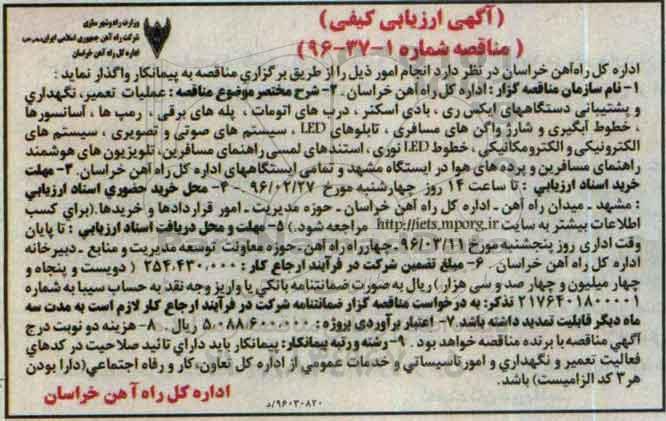 (آگهی ارزیابی کیفی)
(مناقصه شماره ۱-۳۷-۹۶)
وزارت راه و شهر سازی
شرکت راه آهن جمهوری اسلامی ایران
اداره کل راه آهن خراسان
اداره کل راه‌آهن خراسان در نظر دارد انجام امور ذیل را از طریق برگزاري مناقصه به پیمانکار واگذار نماید :
۱- نام سازمان مناقصه گزار : اداره کل راه آهن خراسان . ۲- شرح مختصر موضوع مناقصه : عملیات تعمیر، نگهداري
و پشتیبانی دستگاههای ایکس ری ، بادی اسکنر ، درب های اتومات ، پله های برقی ، رمپ ها ، آسانسورها
، خطوط آبگیری و شارژ واگن های مسافری ، تابلوهای LED ، سیستم های صوتی و تصویری ، سیستم های
الکترونیکی و الکترومکانیکی ، خطوط LED نوری ، استندهای لمسی راهنمای مسافرین، تلویزیون های هوشمند
راهنمای مسافرین و پرده های هوا در ایستگاه مشهد و تمامی ایستگاههای اداره کل راه آهن خراسان. ۳- مهلت
خرید اسناد ارزیابی : تا ساعت ۱۴ روز چهارشنبه مورخ ۹۶/۰۲/۲۷ - ۴- محل خرید حضوري اسناد ارزیابی
: مشهد - میدان راه آهن - اداره کل راه آهن خراسان - حوزه مدیریت - امور قراردادها و خریدها.(برای کسب
اطلاعات بیشتر به سایت http://iets.mporg.ir مراجعه شود.) ۵- مهلت و محل دریافت اسناد ارزیابی : تا پایان
وقت اداری روز پنجشنبه مورخ ۹۶/۰۳/۱۱-چهارراه راه آهن-حوزه معاونت توسعه مدیریت و منابع - دبیرخانه
اداره کل راه آهن خراسان . ۶- مبلغ تضمین شرکت در فرآیند ارجاع کار : ۲۵۴،۴۳۰،۰۰۰ ( دویست و پنجاه و
چهار میلیون و چهار صد و سی هزار) ریال به صورت ضمانتنامه بانکي یا واریز وجه نقد به حساب سیبا به شماره
۲۱۷۶۴۰۱۸۰۰۰۰۱ تذکر: به درخواست مناقصه گزار ضمانتنامه شرکت در فرآیند ارجاع کار لازم است به مدت سه
ماه دیگر قابلیت تمدید داشته باشد. ۷- اعتبار برآوردی پروژه : ۵،۰۸۸،۶۰۰،۰۰۰ ریال . ۸- هزینه دو نوبت درج
آگهي مناقصه با برنده مناقصه خواهد بود . ۹- رشته و رتبه پیمانکار: پیمانکار باید دارای تائید صلاحیت در کدهای
فعالیت تعمیر و نگهداري و امور تاسیساتي و خدمات عمومي از اداره کل تعاون،کار و رفاه اجتماعي(دارا بودن
هر ۳ کد الزامیست) باشد.
اداره کل راه آهن خراسان
۹۶۰۳۰۸۲۰/د